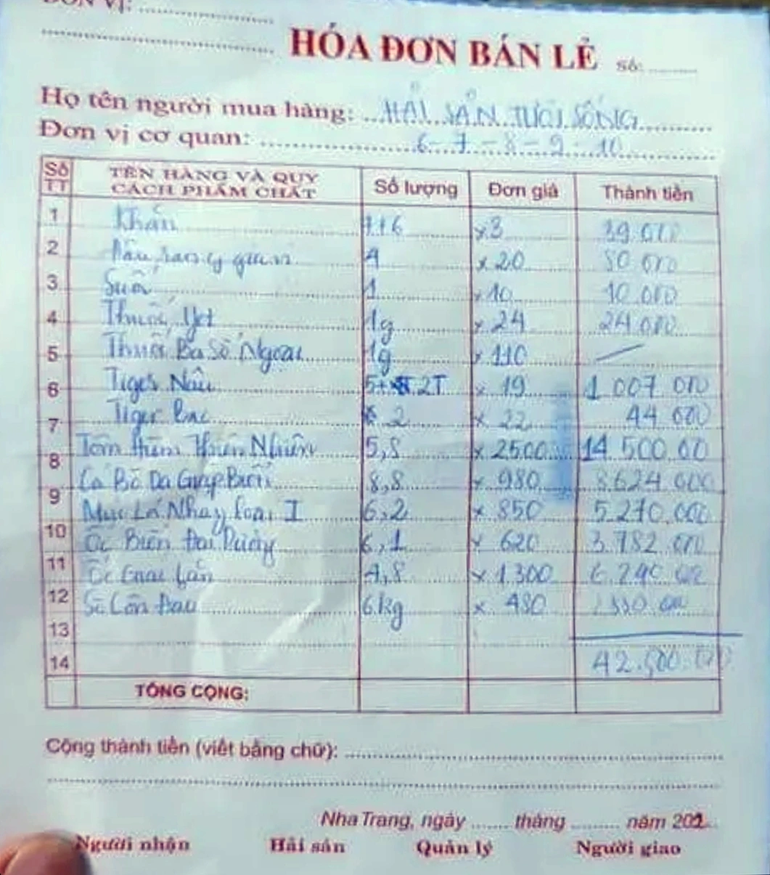 ĐƠN VỊ:
HÓA ĐƠN BÁN LẺ Số:
Họ tên người mua hàng: HẢI SẢN TƯƠI SỐNG
Đơn vị cơ quan: 6-7-8-9-10
Số TT TÊN HÀNG VÀ QUY CÁCH PHẨM CHẤT Số lượng Đơn giá Thành tiền
1 Khăn x3 39.000
2 x20 80.000
3 Suối 1 x10 10.000
4 Thuốc Jet 1g x 24 24.000
5 Thuốc Ba Số Ngoại 1g x 110
6 Tiger Nâu 2T x 19 1 007.000
7 Tiger Bạc 2 x 22 44 000
8 Tôm Hùm Thiên Nhiên 5,8 x 2500 14 500.00
9 Cá Bò Da Giáp Biển 8,8 x 980 8.624 000
10 Mực Lá Nháy Loại I 6,2 x 850 5.270.000
11 Ốc Biển Đại Dương 6,1 x 620 3.782 000
12 Ốc Gai 4,8 x 1.300
13 Sò 6kg x 480
14 42.500.000
TỔNG CỘNG:
Cộng thành tiền (viết bằng chữ):
Nha Trang, ngày tháng năm 202
Người nhận Hải sản Quản lý Người giao